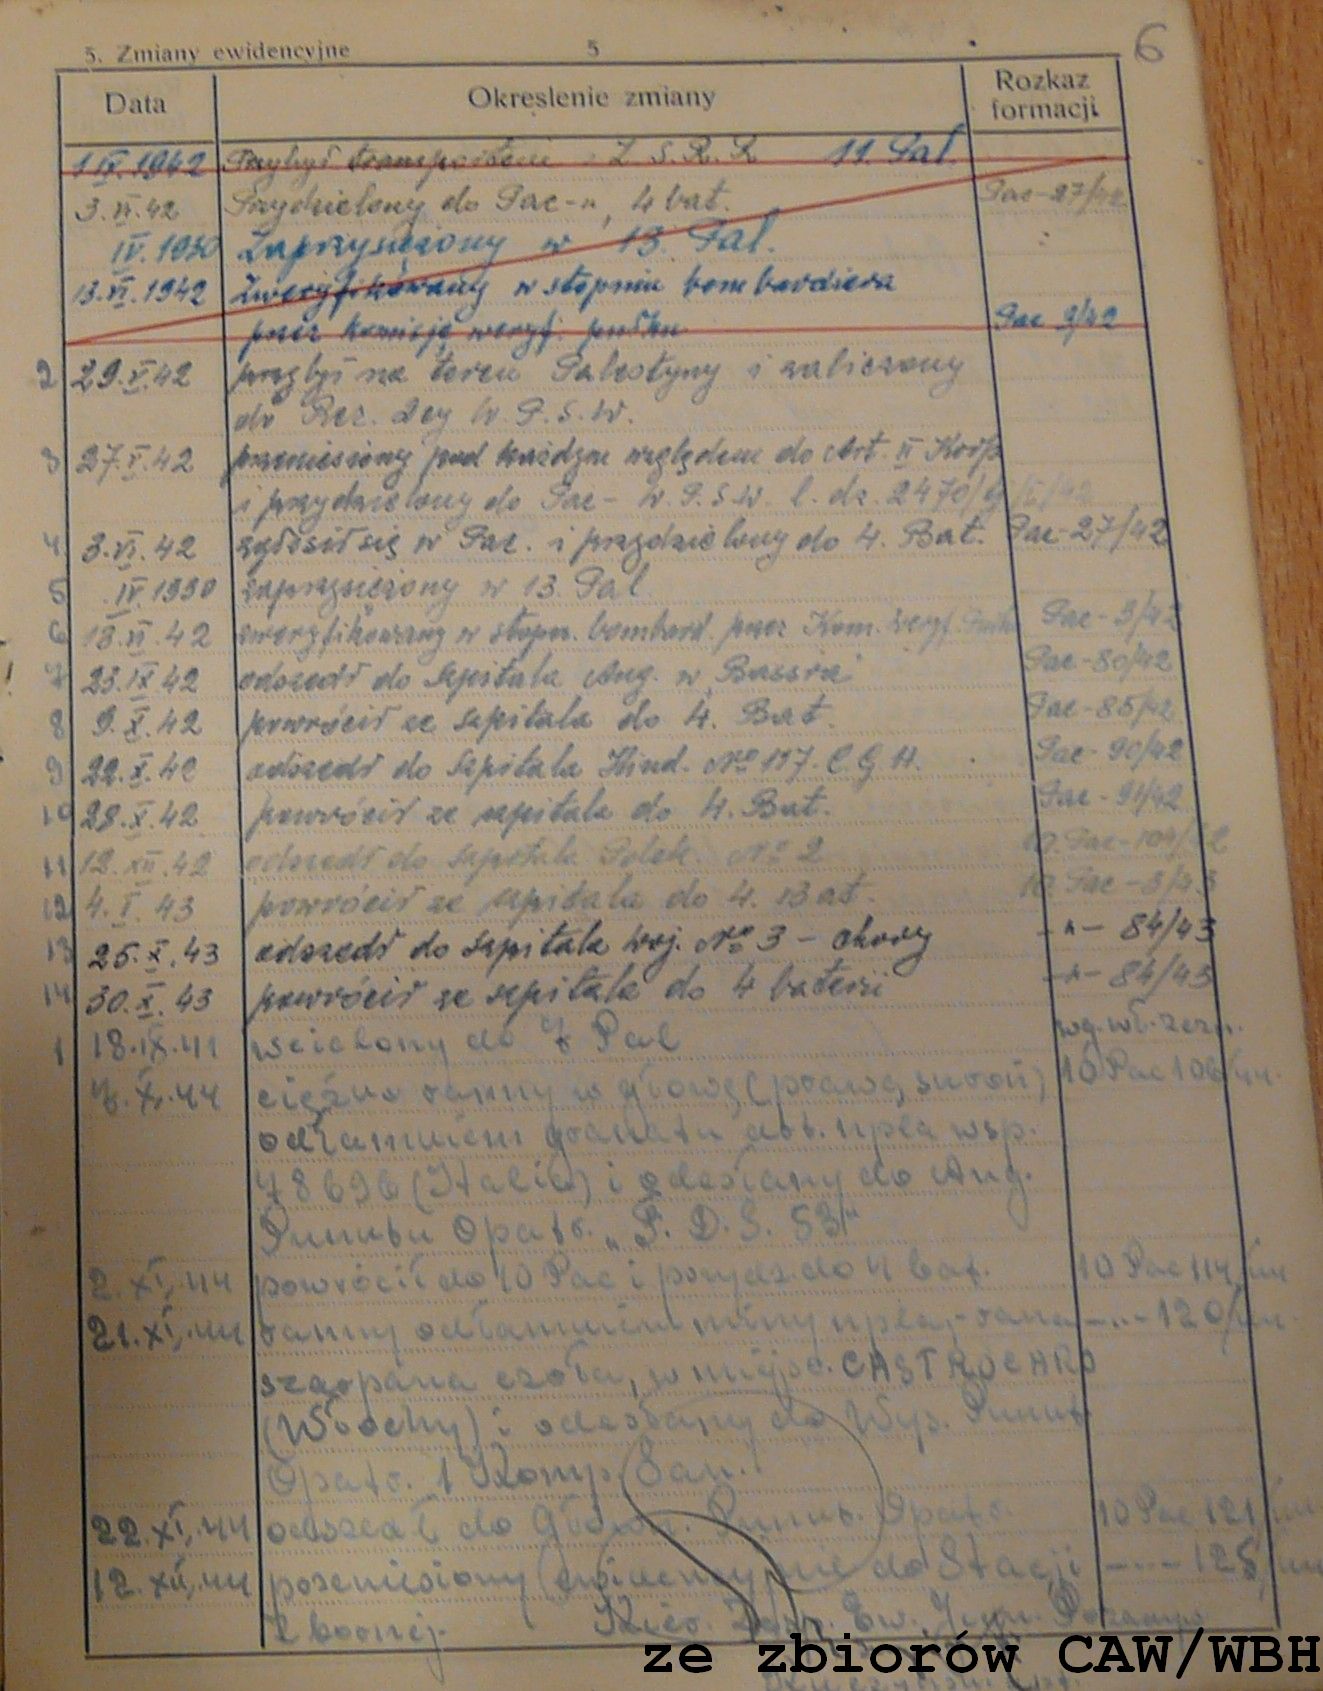 5. Zmiany ewidencyjne 5 6
Data Określenie zmiany Rozkaz formacji
1 IV. 1942 Przybył transportem z Z. S. R. R. 11. Pal.
3. VI. 42 Przydzielony do Pac-u, 4 bat. Pac-27/42
IV. 1930 Zaprzysiężony w 13. Pal.
13. VI. 1942 Zweryfikowany w stopniu bombardiera
przez komisję weryf. pułku Pac 9/42
2 29. V. 42 przybył na teren Palestyny i zaliczony
do Rez. Dcy W. P. Ś. W.
3 27. V. 42 przeniesiony pod każdym względem do Art. II Korp.
i przydzielony do Pac- W. P. Ś. W. l. dz. 2470/
4 3. VI. 42 zgłosił się w Pac. i przydzielony do 4. Bat. Pac-27/42
5 IV. 1930 zaprzysiężony w 13. Pal.
6 13. VI. 42 zweryfikowany w stopn. bombard. przez Kom. Weryf. Pułku Pac-9/42
7 23. IX. 42 odszedł do szpitala Ang. w Bassrai Pac-80/42
8 9. X. 42 powrócił ze szpitala do 4. Bat. Pac-85/42
9 22. X. 42 odszedł do szpitala Hind. No 117. C G H. Pac-90/42
10 28. X. 42 powrócił ze szpitala do 4. Bat. Pac-91/42
11 12. XII. 42 odszedł do szpitala Polsk. No 2 10. Pac-104/42
12 4. I. 43 powrócił ze szpitala do 4. Bat. 10. Pac-3/43
13 25. X. 43 odszedł do szpitala woj. No 3 – chory -"- 84/43
14 30. X. 43 powrócił ze szpitala do 4 baterii -"- 84/43
1 18. IX. 41 wcielony do 7 Pal wg. wł. zezn.
7. X. 44 ciężko ranny w głowę (prawą skroń) 10 Pac 106/44.
odłamkiem granatu art. npla wsp.
78696 (Italia) i odesłany do Ang.
Punktu Opatr. „F. D. S. 53"
2. XI. 44 powrócił do 10 Pac i przydz. do 4 bat. 10 Pac 114/44
21. XI. 44 ranny odłamkiem miny npla, - rana -"- 120/44.
szarpana czoła, w miejsc. CASTROCARO
(Włochy) i odesłany do Wys. Punkt.
Opatr. 1 Komp. San.
22. XI. 44 odszedł do Główn. Punkt. Opatr. 10 Pac 121/44
12. XII. 44 przeniesiony ewidencyjnie do Stacji -"- 125/44
Zbornej. Kier. Ew.
ze zbiorów CAW/WBH